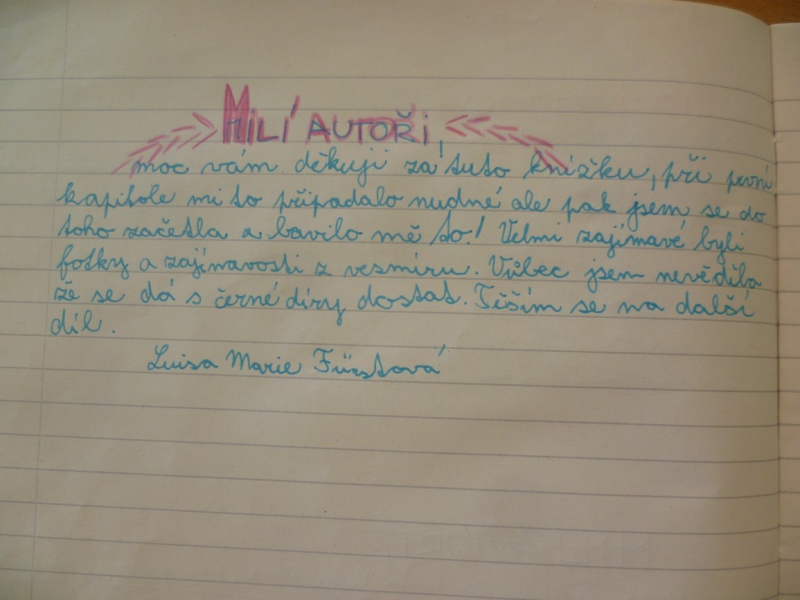 MILÍ AUTOŘI,
moc vám děkuji za tuto knížku, při první
kapitole mi to připadalo nudné ale pak jsem se do
toho začetla a bavilo mě to! Velmi zajímavé byli
fotky a zajímavosti z vesmíru. Vůbec jsem nevěděla
že se dá s černé díry dostat. Těším se na další
díl.
Luisa Marie Fürstová